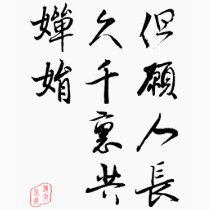 但願人長
久千裏共
嬋娟